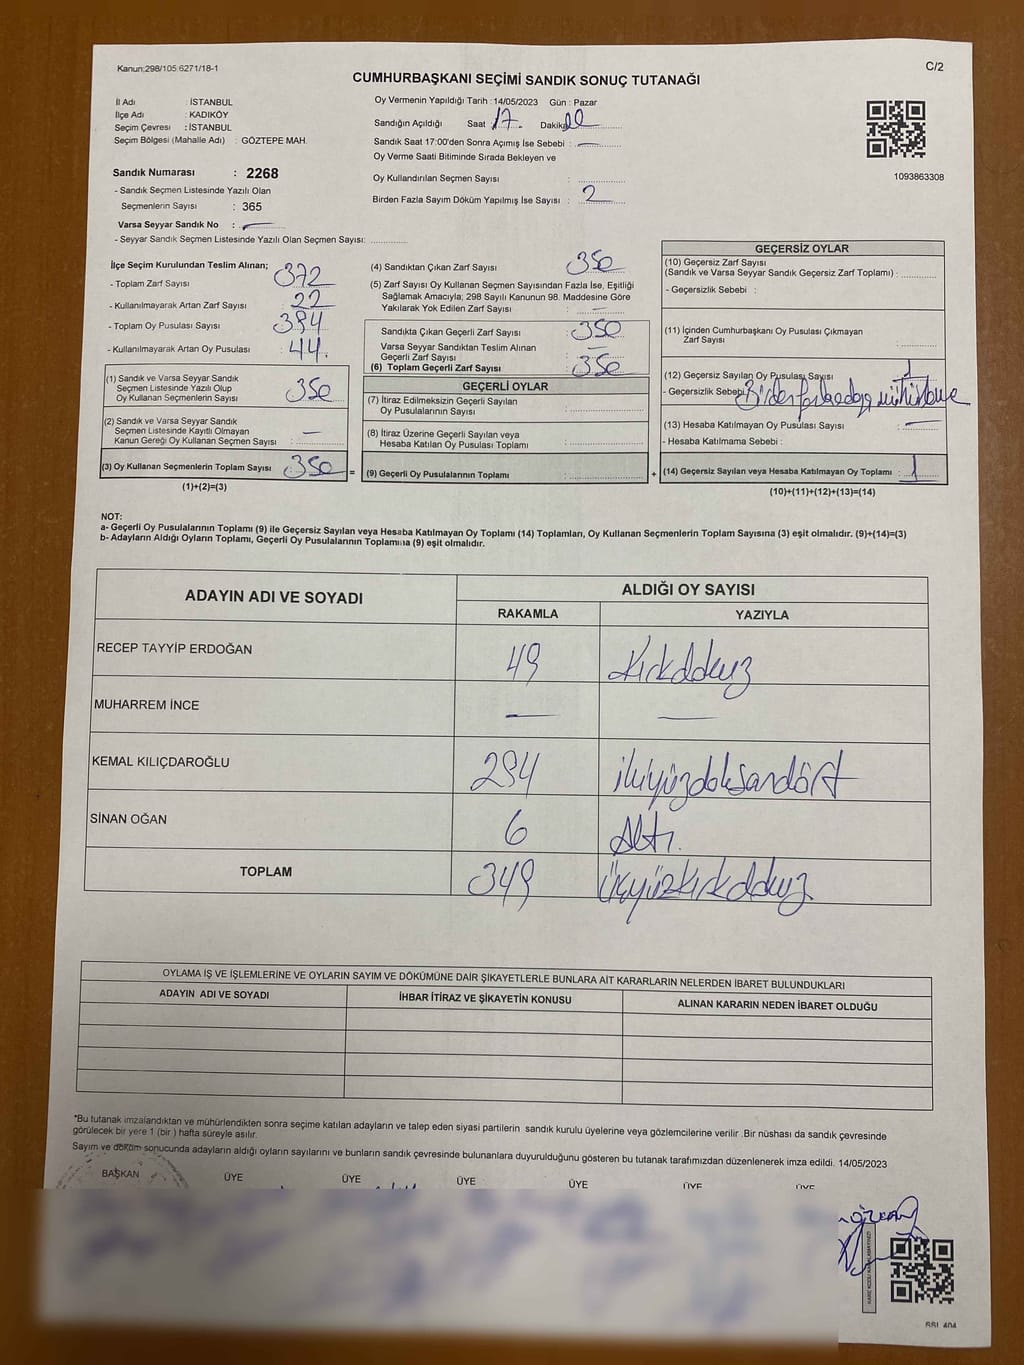 Kanun:298/105 6271/18-1
C/2
CUMHURBAŞKANI SEÇİMİ SANDIK SONUÇ TUTANAĞI
İl Adı : İSTANBUL
İlçe Adı : KADIKÖY
Seçim Çevresi : İSTANBUL
Seçim Bölgesi (Mahalle Adı) : GÖZTEPE MAH.
Oy Vermenin Yapıldığı Tarih : 14/05/2023 Gün : Pazar
Sandığın Açıldığı Saat 17. Dakika
Sandık Saat 17:00'den Sonra Açımış İse Sebebi : —
Oy Verme Saati Bitiminde Sırada Bekleyen ve
Oy Kullandırılan Seçmen Sayısı :
Birden Fazla Sayım Döküm Yapılmış İse Sayısı : 2
1093863308
Sandık Numarası : 2268
- Sandık Seçmen Listesinde Yazılı Olan
Seçmenlerin Sayısı : 365
Varsa Seyyar Sandık No : —
- Seyyar Sandık Seçmen Listesinde Yazılı Olan Seçmen Sayısı:
İlçe Seçim Kurulundan Teslim Alınan;
- Toplam Zarf Sayısı : 372
- Kullanılmayarak Artan Zarf Sayısı : 22
- Toplam Oy Pusulası Sayısı : 394
- Kullanılmayarak Artan Oy Pusulası : 44.
(1) Sandık ve Varsa Seyyar Sandık
Seçmen Listesinde Yazılı Olup
Oy Kullanan Seçmenlerin Sayısı : 350
(2) Sandık ve Varsa Seyyar Sandık
Seçmen Listesinde Kayıtlı Olmayan
Kanun Gereği Oy Kullanan Seçmen Sayısı : —
(3) Oy Kullanan Seçmenlerin Toplam Sayısı : 350
(1)+(2)=(3)
(4) Sandıktan Çıkan Zarf Sayısı : 350
(5) Zarf Sayısı Oy Kullanan Seçmen Sayısından Fazla İse, Eşitliği
Sağlamak Amacıyla; 298 Sayılı Kanunun 98. Maddesine Göre
Yakılarak Yok Edilen Zarf Sayısı : —
Sandıkta Çıkan Geçerli Zarf Sayısı : 350
Varsa Seyyar Sandıktan Teslim Alınan
Geçerli Zarf Sayısı : —
(6) Toplam Geçerli Zarf Sayısı : 350
GEÇERLİ OYLAR
(7) İtiraz Edilmeksizin Geçerli Sayılan
Oy Pusulalarının Sayısı :
(8) İtiraz Üzerine Geçerli Sayılan veya
Hesaba Katılan Oy Pusulası Toplamı :
= (9) Geçerli Oy Pusulalarının Toplamı :
GEÇERSİZ OYLAR
(10) Geçersiz Zarf Sayısı
(Sandık ve Varsa Seyyar Sandık Geçersiz Zarf Toplamı) :
- Geçersizlik Sebebi :
(11) İçinden Cumhurbaşkanı Oy Pusulası Çıkmayan
Zarf Sayısı :
(12) Geçersiz Sayılan Oy Pusulası Sayısı 1
- Geçersizlik Sebebi : Birden fazla adaya
(13) Hesaba Katılmayan Oy Pusulası Sayısı : —
- Hesaba Katılmama Sebebi :
+ (14) Geçersiz Sayılan veya Hesaba Katılmayan Oy Toplamı : 1
(10)+(11)+(12)+(13)=(14)
NOT:
a- Geçerli Oy Pusulalarının Toplamı (9) ile Geçersiz Sayılan veya Hesaba Katılmayan Oy Toplamı (14) Toplamları, Oy Kullanan Seçmenlerin Toplam Sayısına (3) eşit olmalıdır. (9)+(14)=(3)
b- Adayların Aldığı Oyların Toplamı, Geçerli Oy Pusulalarının Toplamına (9) eşit olmalıdır.
ADAYIN ADI VE SOYADI
ALDIĞI OY SAYISI
RAKAMLA YAZIYLA
RECEP TAYYİP ERDOĞAN 49 Kırkdokuz
MUHARREM İNCE — —
KEMAL KILIÇDAROĞLU 294 ikiyüzdoksandört
SİNAN OĞAN 6 Altı.
TOPLAM 349 üçyüzkırkdokuz
OYLAMA İŞ VE İŞLEMLERİNE VE OYLARIN SAYIM VE DÖKÜMÜNE DAİR ŞİKAYETLERLE BUNLARA AİT KARARLARIN NELERDEN İBARET BULUNDUKLARI
ADAYIN ADI VE SOYADI İHBAR İTİRAZ VE ŞİKAYETİN KONUSU ALINAN KARARIN NEDEN İBARET OLDUĞU
*Bu tutanak imzalandıktan ve mühürlendikten sonra seçime katılan adayların ve talep eden siyasi partilerin sandık kurulu üyelerine veya gözlemcilerine verilir .Bir nüshası da sandık çevresinde
görülecek bir yere 1 (bir ) hafta süreyle asılır.
Sayım ve döküm sonucunda adayların aldığı oyların sayılarını ve bunların sandık çevresinde bulunanlara duyurulduğunu gösteren bu tutanak tarafımızdan düzenlenerek imza edildi. 14/05/2023
BAŞKAN ÜYE ÜYE ÜYE ÜYE ÜYE ÜYE